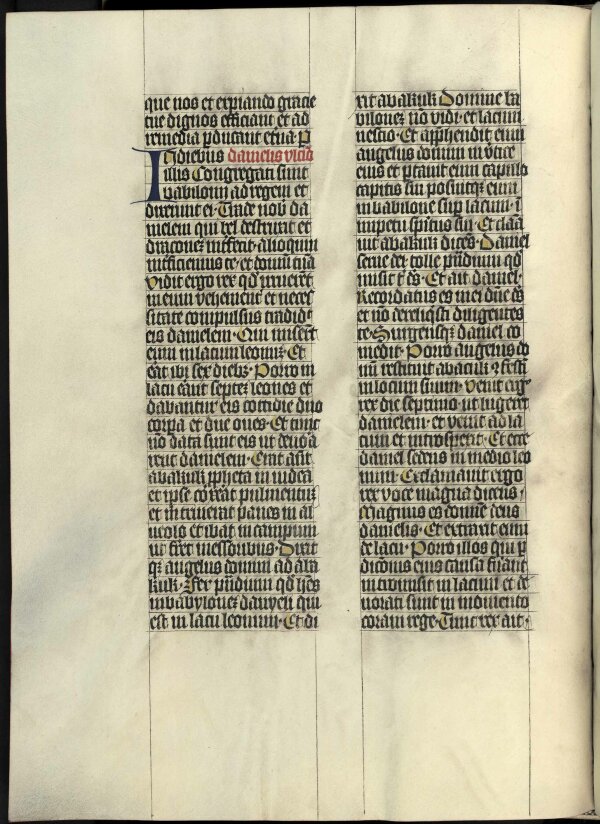 que nos et expiando gracie
tue dignos efficiant et ad
remedia pducant etna P
In diebus danielis
illis Congregati sunt
babilonii ad regem et
dixerunt ei Trade nob da
nielem qui bel destruxit et
draconez interfecit alioquin
interficiemus te et domu tua
Vidit ergo rex qd irruerēt
in eum vehement et neces
sitate compulsus tradidt
eis danielem Qui miserūt
eum in lacum leonuz Et
erāt ibi sex diebz Porro in
lacu erāt septez leones et
dabantur eis cottidie duo
corpa et due oues Et tunc
nō data sunt eis ut deuora
rent danielem Erat ātē
abakuk ppheta in iudea
et ipse coxerat pulmentuz
et intriuerat panes in al
ueolo et ibat in campum
ut fret messoribus Dixit
qz angelus domini ad aba
kuk Fer prādium qd hēs
in babylonez danyeli qui
est in lacu leonum Et di
xit abakuk Domine ba
bilonez nō vidi et lacum
nescio Et apphendit eum
angelus domini in vtice
eius et ptauit eum capillo
capitis sui posuitqz eum
in babilone sup lacum ī
impetu spiritus sui Et clāa
uit abakuk dices Daniel
serue dei tolle prādium qd
misit t ds Et ait daniel
Recordatus es mei dne ds
et nō dereliqsti diligentes
te Surgensqz daniel co
medit Porro angelus do
mī restituit abacuk
in locum suum Venit erg
rex die septimo ut lugeret
danielem et venit ad la
cum et introspexit Et ecce
daniel sedens in medio leo
num Exclamauit ergo
rex voce magna dicens
Magnus es domine deus
danielis Et extraxit eum
de lacu Porro illos qui p
dicionis eius causa fuerant
intromisit in lacum et de
uorati sunt in momento
coram rege Tunc rex ait